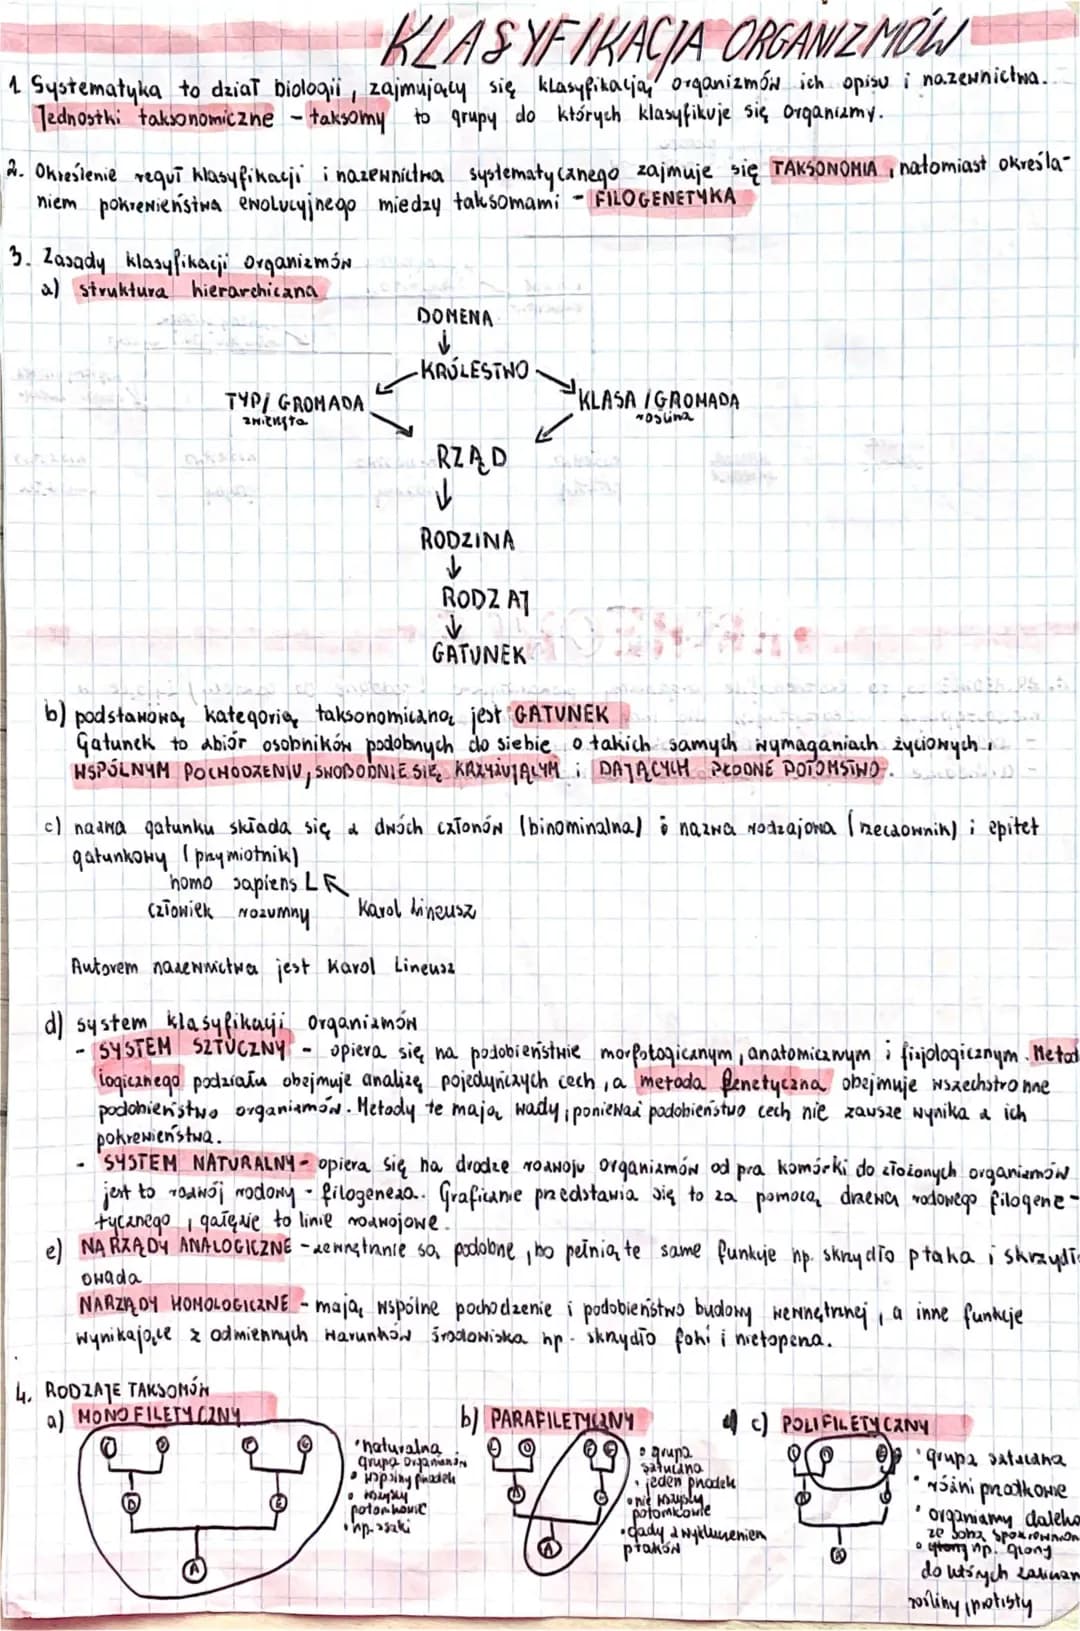 KLASYFIKACJA ORGANIZMÓW
1 Systematyka to dział biologii, zajmujący się klasyfikacją organizmów ich opisu i nazewnictwa.
Jednostki taksonomiczne - taksomy to grupy do których klasyfikuje się organizmy.
2. Określenie reguł klasyfikacji i nazewnictwa systematycznego zajmuje się TAKSONOMIA, natomiast określa-
niem pokrewieństwa ewolucyjnego miedzy taksomami - FILOGENETYKA
3. Zasady klasyfikacji organizmów
a) struktura hierarchiczna
DOMENA
↓
KRÓLESTWO
TYP/ GROMADA KLASA /GROMADA
zwierzęta roślina
RZĄD
↓
RODZINA
↓
RODZAJ
↓
GATUNEK
b) podstawową kategorią taksonomiczną jest GATUNEK
Gatunek to zbiór osobników podobnych do siebie o takich samych wymaganiach życiowych,
WSPÓLNYM POCHODZENIU, SWOBODNIE SIĘ KRZYŻUJĄCYM i DAJĄCYCH PŁODNE POTOMSTWO.
c) nazwa gatunku składa się z dwóch członów (binominalna) nazwa rodzajowa (rzeczownik) i epitet
gatunkowy (przymiotnik)
homo sapiens L
człowiek rozumny Karol Lineusz
Autorem nazewnictwa jest Karol Lineusz
d) system klasyfikacji organizmów
- SYSTEM SZTUCZNY - opiera się na podobieństwie morfologicznym, anatomicznym i fizjologicznym. Metod
logicznego podziału obejmuje analizę pojedyńczych cech, a metoda fenetyczna obejmuje wszechstronne
podobieństwo organizmów. Metody te mają wady, ponieważ podobieństwo cech nie zawsze wynika z ich
pokrewieństwa.
- SYSTEM NATURALNY - opiera się na drodze rozwoju organizmów od pra komórki do złożonych organizmów
jest to rozwój rodowy - filogeneza. Graficznie przedstawia się to za pomocą drzewa rodowego filogene-
tycznego, gałęzie to linie rozwojowe.
e) NARZĄDY ANALOGICZNE - zewnętrznie są podobne, bo pełnią te same funkcje np. skrzydło ptaka i skrzydł
owada
NARZĄDY HOMOLOGICZNE - mają wspólne pochodzenie i podobieństwo budowy wewnętrznej, a inne funkcje
wynikające z odmiennych warunków środowiska np. skrzydło foki i nietoperza.
4. RODZAJE TAKSOMÓW
a) MONOFILETYCZNY
• naturalna
grupa organizmów
• wspólny przodek
• wszyscy
potomkowie
• np. ssaki
A
b) PARAFILETYCZNY
• grupa
sztuczna
• jeden przodek
• nie wszyscy
potomkowie
• gady z wykluczeniem
ptaków
A
c) POLIFILETYCZNY
• grupa sztuczna
• różni przodkowie
• organizmy daleko
ze sobą spokrewnion
• np. glony
do których zaliczam
rośliny, protisty
A